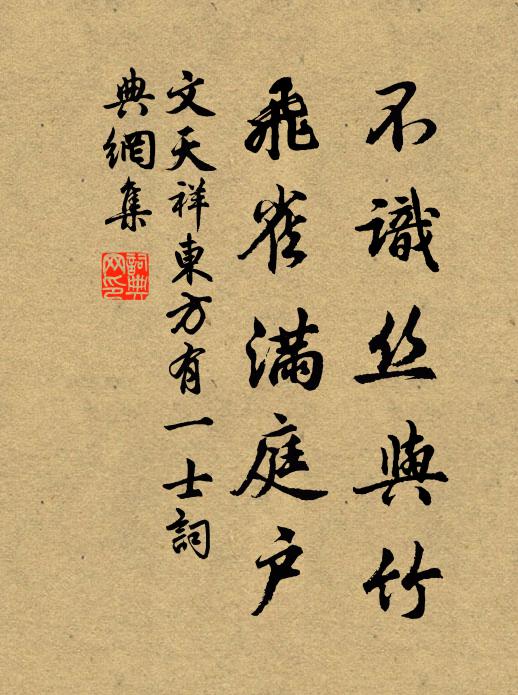 不識丝與竹
飛雀满庭户
文天祥東方有一士詞
典網集
詞典
网印